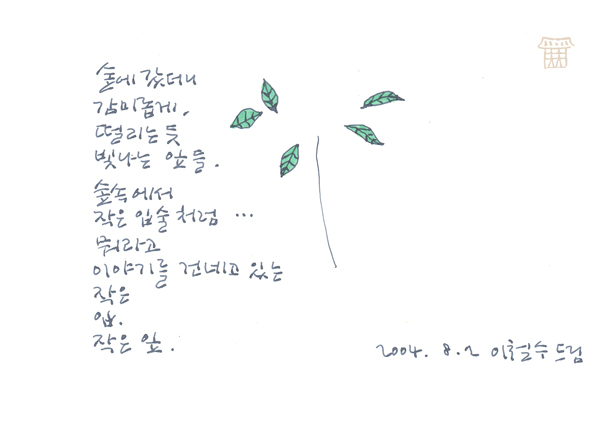 숲에 갔더니
감미롭게,
떨리는 듯
빛나는 잎들.
숲속에서
작은 입술처럼 …
뭐라고
이야기를 건네고 있는
작은
잎.
작은 잎.
2004. 8. 2 이철수 드림